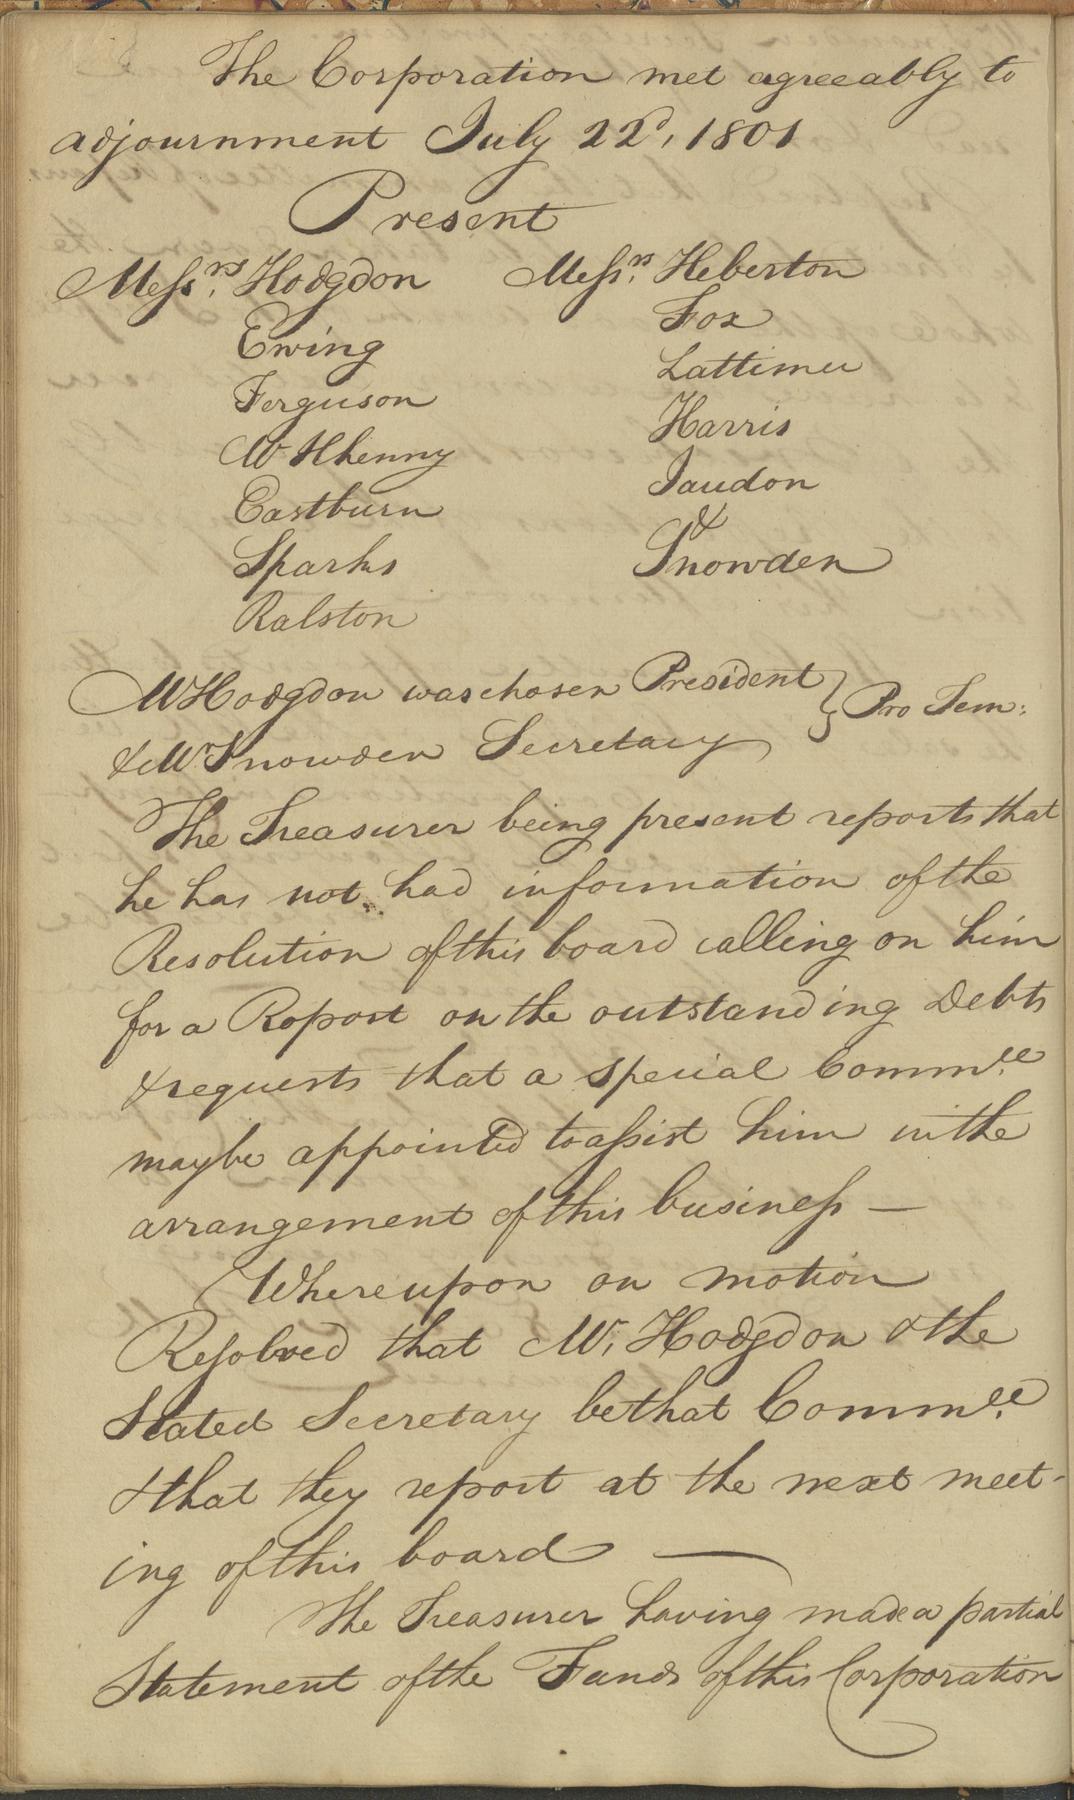 The Corporation met agreeably to
adjournment July 22d, 1801
Present
Messrs. Hodgdon
Ewing
Ferguson
McIlhenny
Eastburn
Sparks
Ralston
Messrs. Heberton
Fox
Lattimer
Harris
Jaudon
&
Snowden
Mr Hodgdon was chosen President } Pro Tem:
& Mr Snowden Secretary
The Treasurer being present reports that
he has not had information of the
Resolution of this board calling on him
for a Report on the outstanding Debts
& requests that a special Commee
may be appointed to assist him in the
arrangement of this business —
Whereupon on motion
Resolved that Mr. Hodgdon & the
Stated Secretary be that Commee
& that they report at the next meet-
ing of this board —
The Treasurer having made a partial
Statement of the Funds of this Corporation